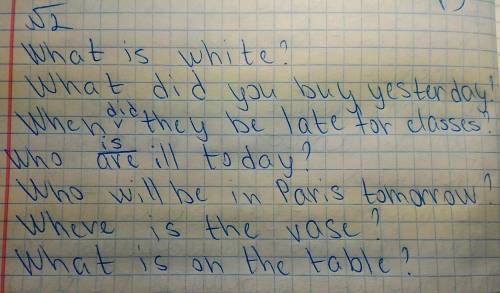 √2
What is white?
What did you buy yesterday?
When did they be late for classes?
Who is are ill today?
Who will be in Paris tomorrow?
Where is the vase?
What is on the table?